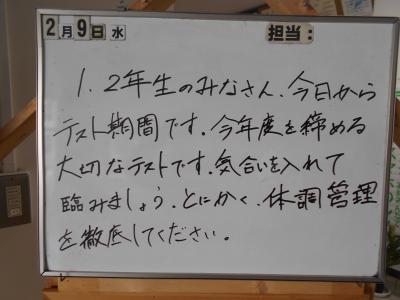 2月9日水 担当:
1.2年生のみなさん、今日から
テスト期間です。今年度を締める
大切なテストです。気合いを入れて
臨みましょう。とにかく、体調管理
を徹底してください。